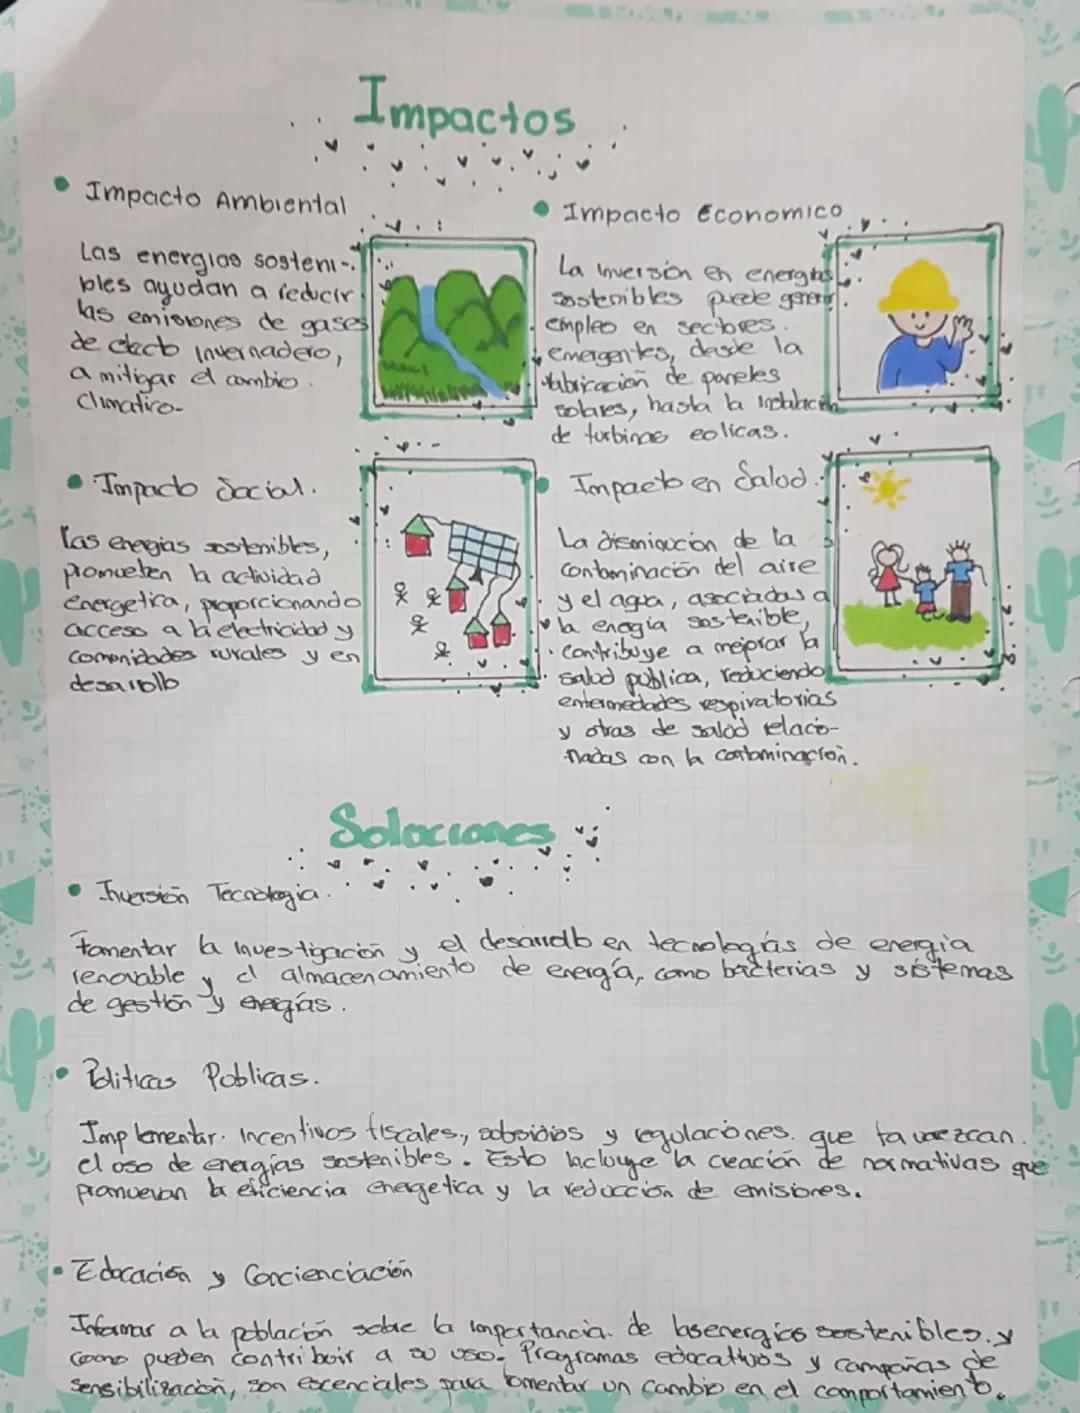 Impactos
• Impacto Ambiental
Las energias sosteni-
bles ayudan a reducir
las emisiones de gases
de efecto invernadero,
a mitigar el cambio
Climatico-
• Impacto Economico
La inversión en energias
sostenibles puede generar
empleo en sectores
emergentes, desde la
fabricación de paneles
solares, hasta la instalación
de turbinas eolicas.
• Impacto Social.
Las energias sostenibles,
promueben la actividad
energetica, proporcionando
acceso a la electricidad y
comonidades rurales y en
desarollo
• Impacto en Salud.
La disminución de la
contaminación del aire
y el agua, asociadas a
la energia sostenible,
contribuye a mejorar la
salud pública, reduciendo
enfermedades respiratorias
y otras de salud relacio-
nadas con la contaminación.
Soluciones
• Inversión Tecnologia.
Fomentar la investigación y el desarrollo en tecnologías de energia
renovable y el almacenamiento de energía, como bacterias y sistemas
de gestión y energías.
• Politicas Publicas.
Implementar. Incentivos fiscales, subsidios y regulaciones. que favorezcan.
el uso de energías sostenibles. Esto incluye la creación de normativas que
promuevan la eficiencia energetica y la reducción de emisiones.
• Educación y Concienciación
Informar a la población sobre la importancia. de las energias sostenibles. y
como pueden contribuir a su uso. Programas educativos y campañas de
sensibilización, son escenciales para fomentar un cambio en el comportamiento.